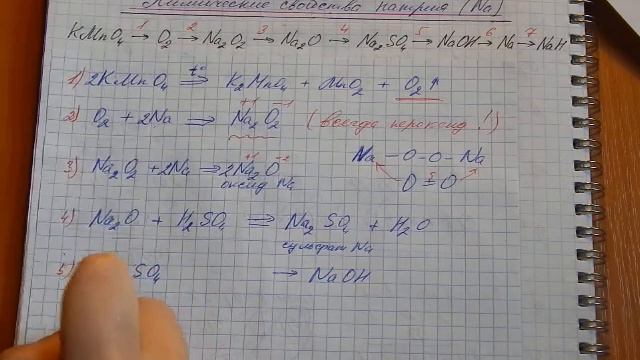 Химические свойства натрия (Na)
KMnO₄ →1 O₂ →2 Na₂O₂ →3 Na₂O →4 Na₂SO₄ →5 NaOH →6 Na →7 NaH
1) 2KMnO₄ t° ⇒ K₂MnO₄ + MnO₂ + O₂↑
2) O₂ + 2Na ⇒ Na₂⁺¹O₂⁻¹ (всегда пероксид!)
3) Na₂O₂ + 2Na ⇒ 2Na₂⁺¹O⁻²
оксид Na
Na – O – O – Na
O = O
4) Na₂O + H₂SO₄ ⇒ Na₂SO₄ + H₂O
сульфат Na
5) SO₄ → NaOH